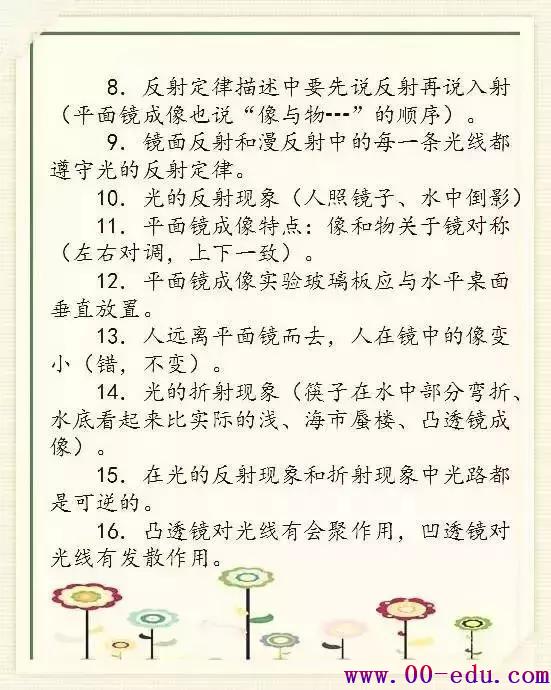 8. 反射定律描述中要先说反射再说入射
(平面镜成像也说“像与物┅”的顺序)。
9. 镜面反射和漫反射中的每一条光线都
遵守光的反射定律。
10. 光的反射现象(人照镜子、水中倒影)
11. 平面镜成像特点:像和物关于镜对称
(左右对调,上下一致)。
12. 平面镜成像实验玻璃板应与水平桌面
垂直放置。
13. 人远离平面镜而去,人在镜中的像变
小(错,不变)。
14. 光的折射现象(筷子在水中部分弯折、
水底看起来比实际的浅、海市蜃楼、凸透镜成
像)。
15. 在光的反射现象和折射现象中光路都
是可逆的。
16. 凸透镜对光线有会聚作用,凹透镜对
光线有发散作用。
www.00-edu.com